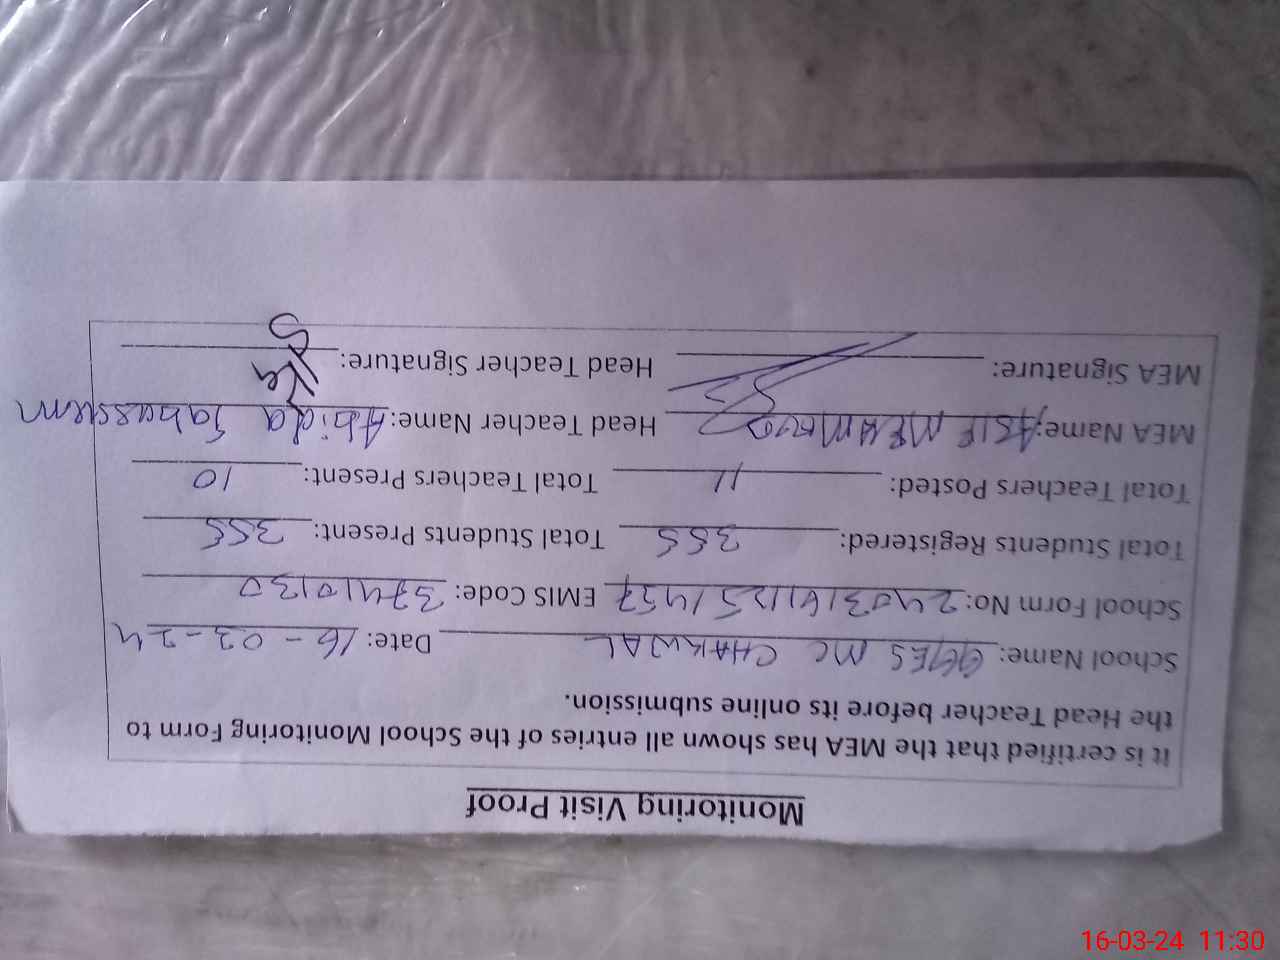 Monitoring Visit Proof
It is certified that the MEA has shown all entries of the School Monitoring Form to
the Head Teacher before its online submission.
School Name: GGES MC CHAKWAL Date: 16-03-24
School Form No: 24031611251457 EMIS Code: 37410130
Total Students Registered: 355 Total Students Present: 355
Total Teachers Posted: 11 Total Teachers Present: 10
MEA Name: ASIF MEHMOOD Head Teacher Name: Abida Tabassum
MEA Signature: Head Teacher Signature:
16-03-24 11:30